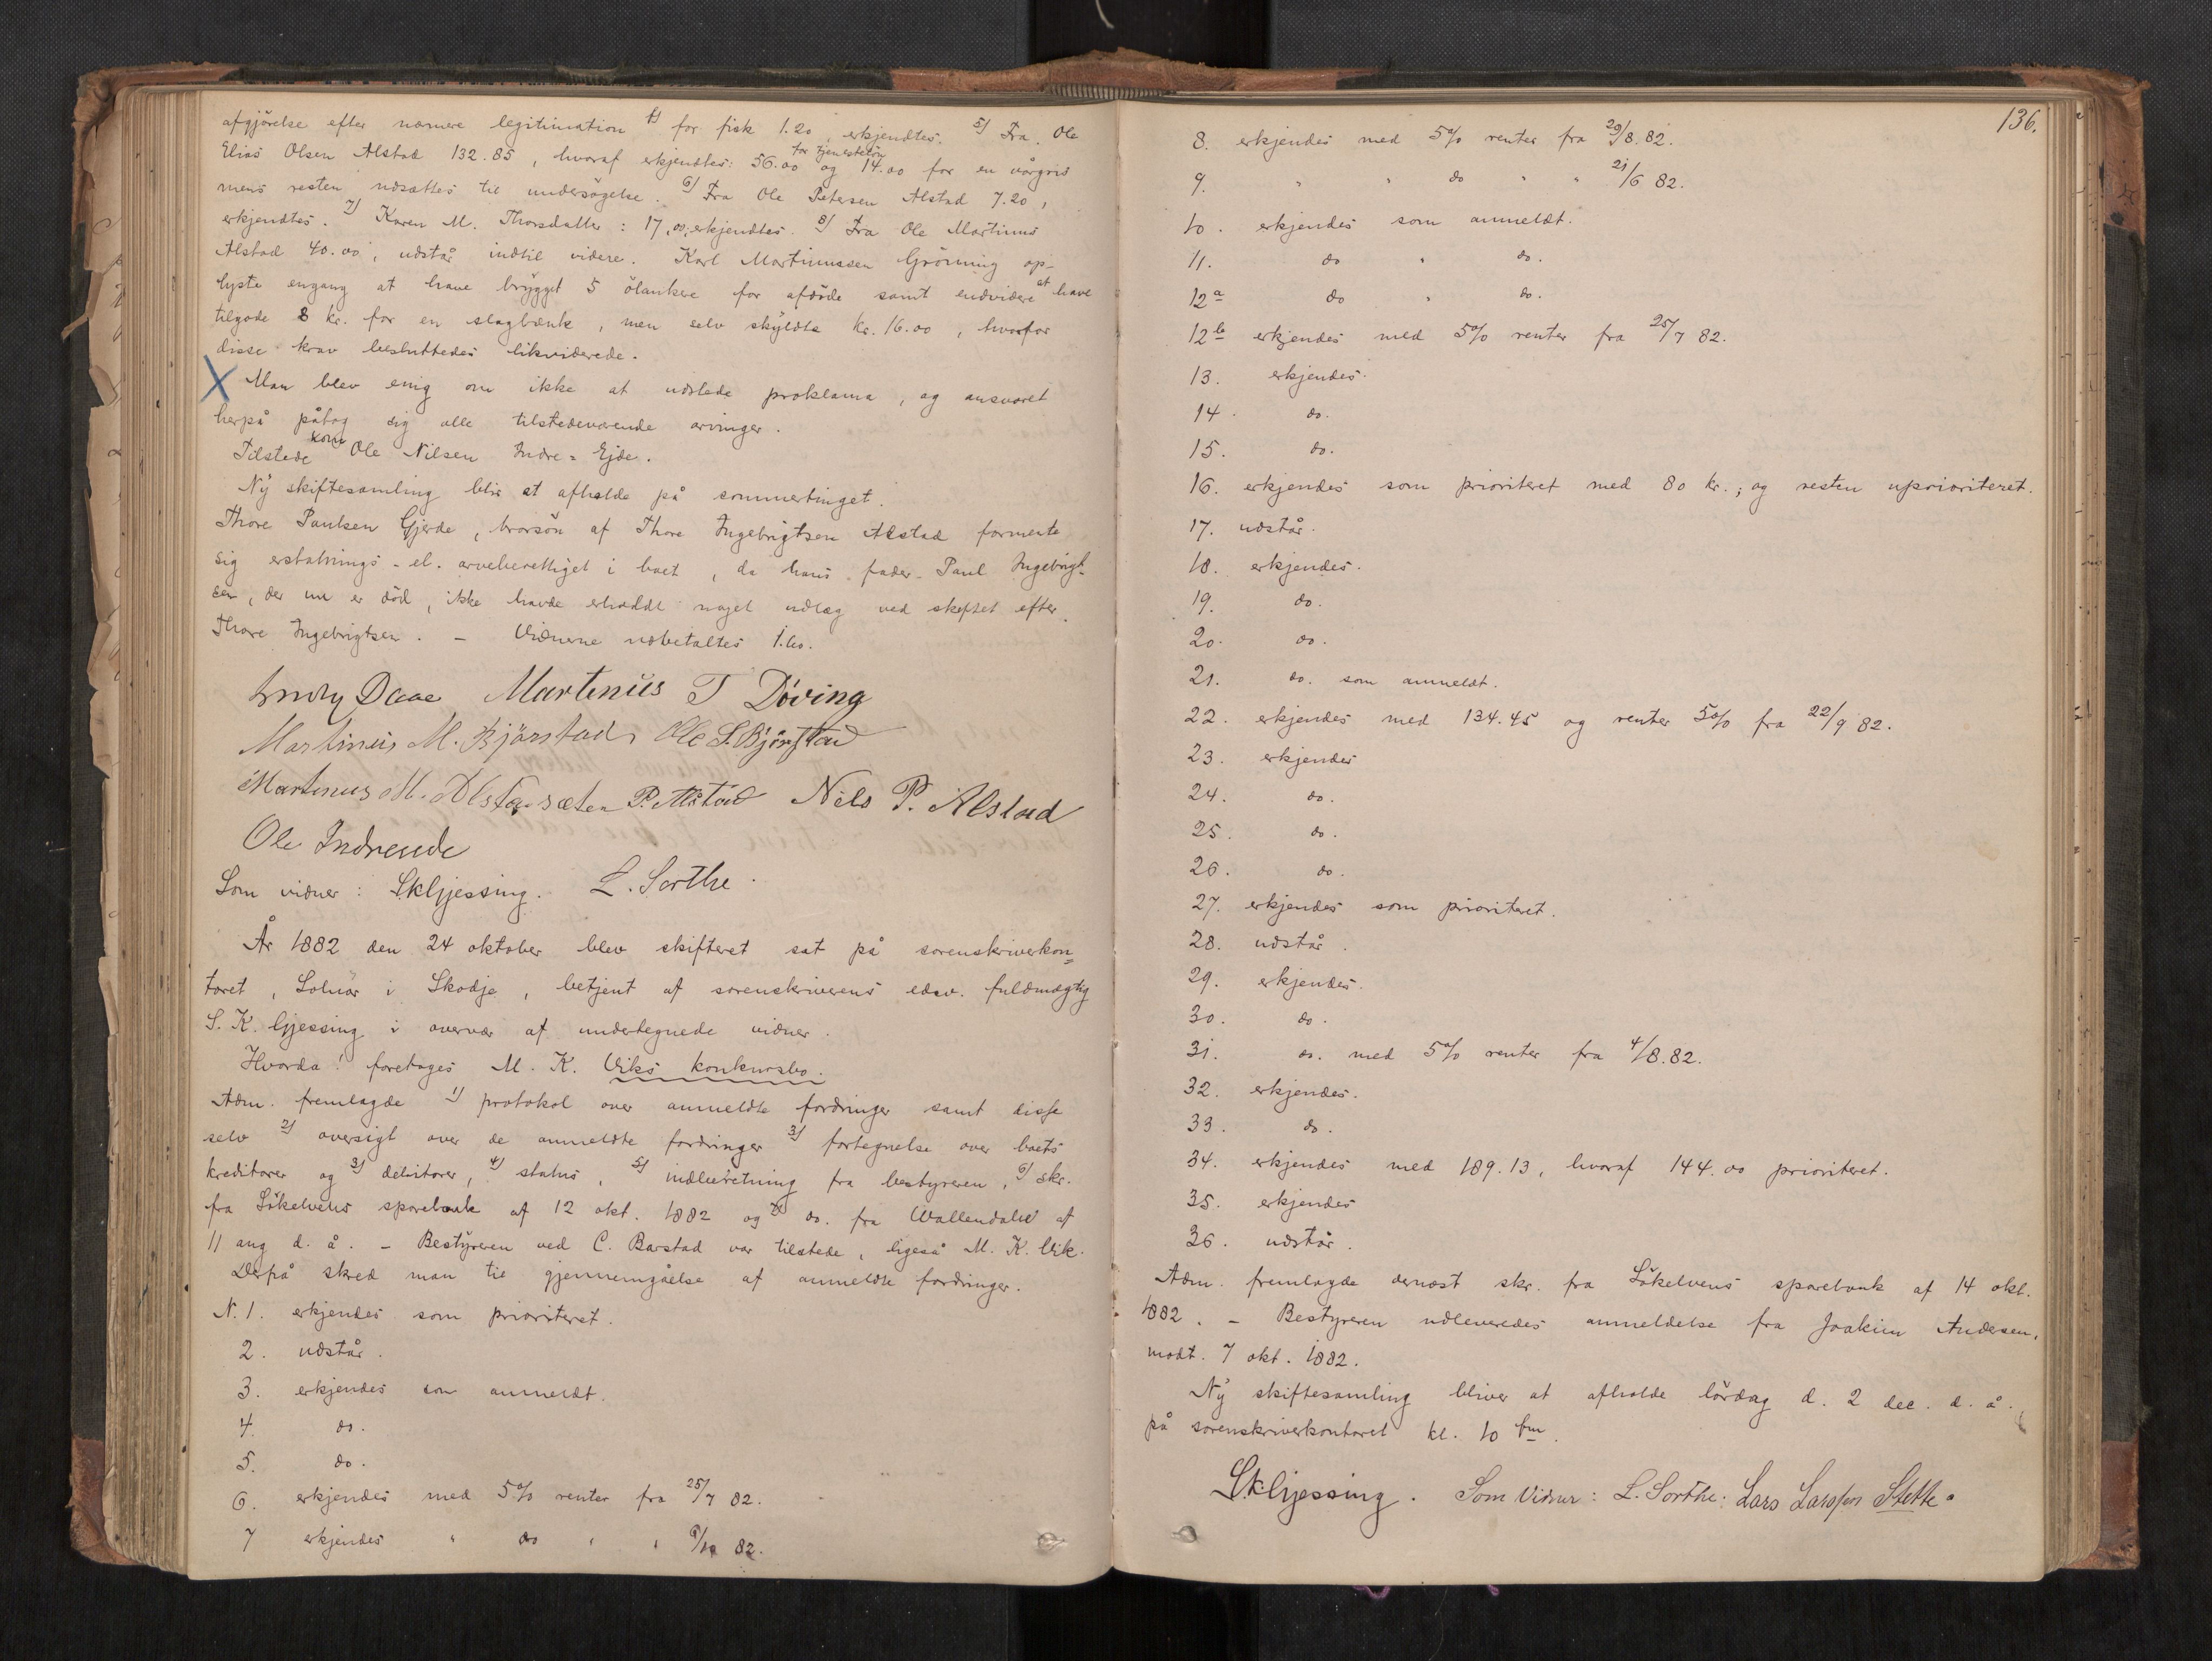 afgjörelse efter nærmere legitimation 4) for fisk 1.20, erkjendtes. 5) Fra Ole
Elias Olsen Alstad 132.85, hvoraf erkjendtes: 56.00 for tjenesteløn og 14.00 for en vårgris
mens resten udsættes til undersøgelse. 6) Fra Ole Petersen Alstad 7.20,
erkjendtes. 7) Karen M. Thorsdatter: 17,00, erkjendtes. 8) Fra Ole Martinus
Alstad 40.00, udstår indtil videre. Karl Martinussen Grönning op-
lyste engang at have brygget 5 ölankere for afdöde samt endvidere at have
tilgode 8 kr. for en slagbænk, men selv skyldte kr. 16.00, hvorfor
disse krav besluttedes likviderede.
X Man blev enig om ikke at udstede proklama, og ansvaret
herpå påtog sig alle tilstedeværende arvinger.
Tilstede kom Ole Nilsen Indre-Ejde.
Ny skiftesamling blir at afholde på sommertinget.
Thore Paulsen Gjerde, brorsön af Thore Ingebrigtsen Alstad formente
sig erstatnings- el. arveberettiget i boet, da hans fader Paul Ingebrigt-
sen, der nu er död, ikke havde erholdt noget udlæg ved skiftet efter
Thore Ingebrigtsen. – Vidnerne udbetaltes 1.60.
Daae Martinus T Döving
Martinus M. Björstad, Ole S. Bjørstad
Martinus M. Alstadsæter P. Alstad Nels P. Alstad
Ole Indreeide
Som vidner: S.K.Gjessing. L. Sorthe.
År 1882 den 24 oktober blev skifteret sat på sorenskriverkon=
toret, Solnör i Skodje, betjent af sorenskriverens edsv. fuldmægtig
S. K. Gjessing i overvær af undertegnede vidner.
Hvorda! foretoges M. K. Viks konkursbo.
Adm. fremlagde 1) protokol over anmeldte fordringer samt disse
selv 2) oversigt over de anmeldte fordringer 3) fortegnelse over boets
kreditorer og 3) debitorer, 4) status, 5) indberetning fra bestyreren, 6) skr.
fra Sökelvens sparebank af 12 okt. 1882 og 7) do. fra Wallendahl af
11 aug d. å. – Bestyreren ved C. Barstad var tilstede, ligeså M. K. Vik.
Derpå skred man til gjennemgåelse af anmeldte fordringer.
N. 1. erkjendes som prioriteret.
2. udstår.
3. erkjendes som anmeldt.
4. do.
5. do.
6. erkjendes med 5% renter fra 25/7 82.
7 erkjendes " do " " 9/10 82.
136.
8. erkjendes med 5% renter fra 29/8.82.
9. " " do " " 21/6 82.
10. erkjendes som anmeldt.
11. do " do.
12a do " do.
12b erkjendes med 5% renter fra 25/7 82.
13. erkjendes.
14. do.
15. do.
16. erkjendes som prioriteret med 80 kr.; og resten uprioriteret.
17. udstår.
18. erkjendes.
19. do.
20. do.
21. do. som anmeldt.
22. erkjendes med 134.45 og renter 5% fra 22/9 82.
23. erkjendes
24. do.
25. do.
26. do.
27. erkjendes som prioriteret.
28. udstår.
29. erkjendes.
30. do.
31. do. med 5% renter fra 4/8.82.
32. erkjendes.
33. do.
34. erkjendes med 189.13, hvoraf 144.00 prioriteret.
35. erkjendes
36. udstår.
Adm. fremlagde dernæst skr. fra Sökelvens sparebank af 14 okt.
1882. – Bestyreren udleveredes anmeldelse fra Joakim Andersen,
modt. 7 okt. 1882.
Ny skiftesamling bliver at afholde lördag d. 2 dec. d. å.
på sorenskriverkontoret kl. 10 fm.
S.K.Gjessing. Som Vidner: L. Sorthe. Lars Larssen Stette.